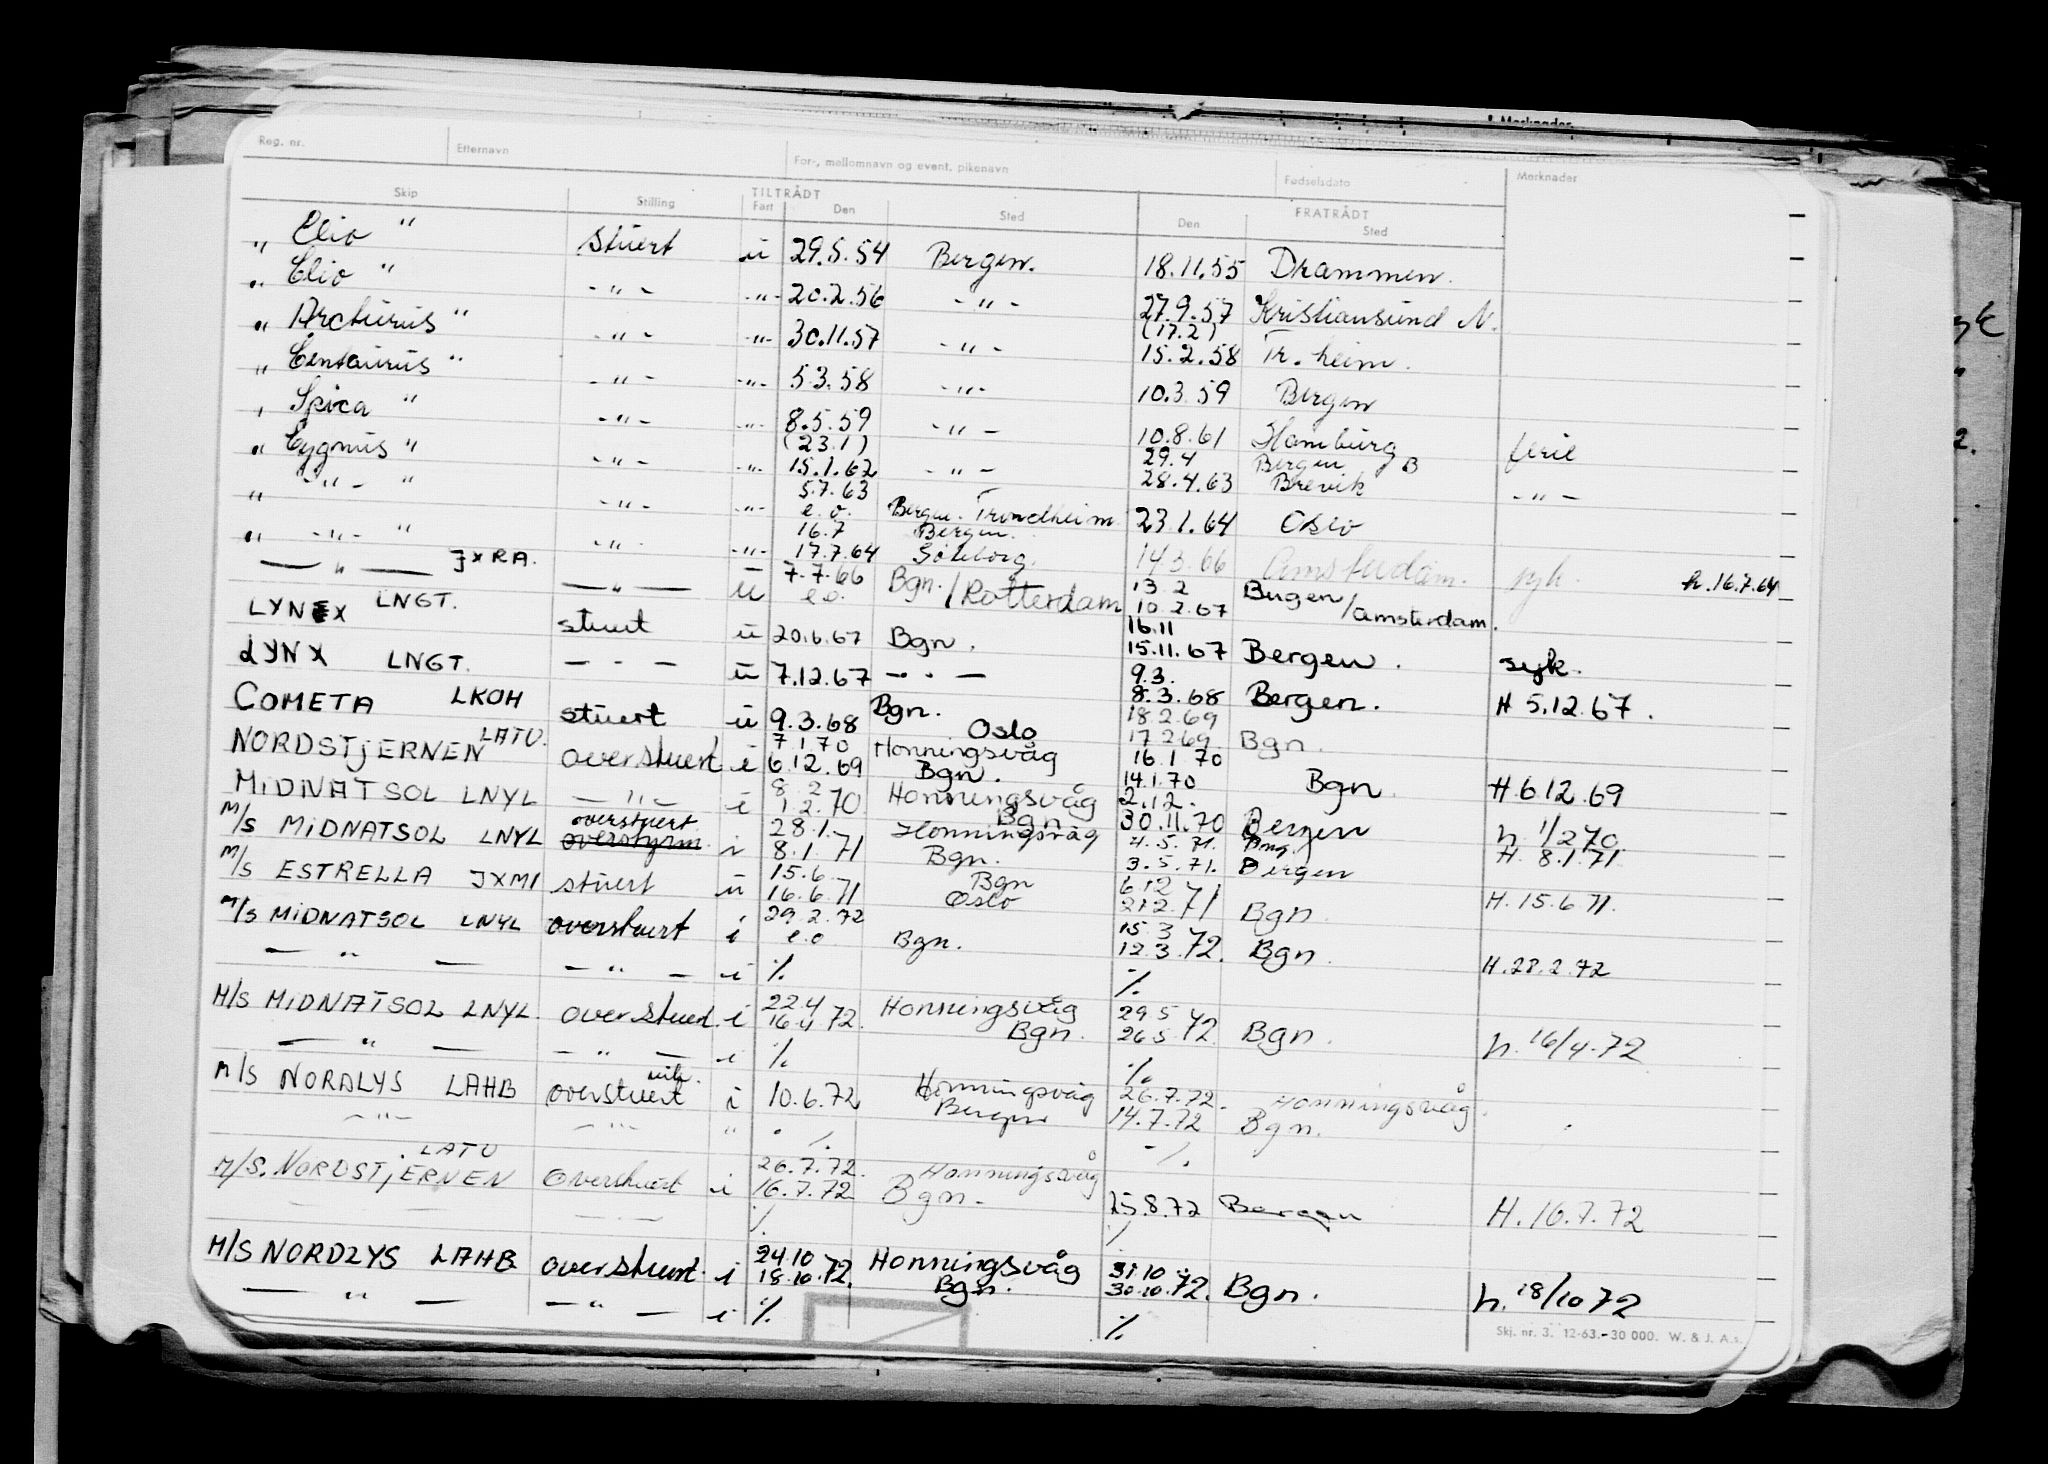 Merknader
Reg. nr. Etternavn For-, mellomnavn og event. pikenavn Fødselsdato Merknader
Skip Stilling TILTRÅDT FRATRÅDT
Fart Den Sted Den Sted
" Clio " stuert u 29.5.54 Bergen. 18.11.55 Drammen.
" Clio " - " - - " - 20.2.56 - " - 27.9.57 Kristiansund N.
" Arcturus " - " - - " - 30.11.57 - " - (17.2) 15.2.58 Tr. heim.
" Centaurus " - " - - " - 5.3.58 - " - 10.3.59 Bergen
" Spica " - " - - " - 8.5.59 - " - 10.8.61 Hamburg ferie
" Cygnus " - " - - " - (23.1) 15.1.62 - " - 29.4 Bergen 28.4.63 Brevik - " -
" - " - " - " - - " - 5.7.63 e.o. Bergen. Trondheim 23.1.64 Oslo
" - " - " - " - - " - 16.7 Bergen. 17.7.64 Göteborg. 14.3.66 Amsterdam. syk. h.16.7.64
— " — JXRA. — " — u 7.7.66 e.o. Bgn./Rotterdam 13.2 10.2.67 Bergen/Amsterdam.
LYNX LNGT. stuert u 20.6.67 Bgn. 16.11 15.11.67 Bergen. syk.
LYNX LNGT. — " — u 7.12.67 — " — 9.3. 8.3.68 Bergen. H 5.12.67.
COMETA LKOH stuert u 9.3.68 Bgn. Oslo 18.2.69 17.2.69 Bgn.
NORDSTJERNEN LATU. overstuert i 7.1.70 6.12.69 Honningsvåg Bgn. 16.1.70 14.1.70 Bgn. H.6.12.69
MIDNATSOL LNYL — " — i 8.2 1.2.70 Honningsvåg Bgn. 2.12. 30.11.70 Bergen h. 1/2 70.
M/S MIDNATSOL LNYL overstuert overstyrm. i 28.1. 8.1.71 Honningsvåg Bgn. 4.5.71. 3.5.71. Bergen H. 8.1.71.
M/S ESTRELLA JXMI stuert u 15.6. 16.6.71 Bgn Oslo 6.12 2.12.71 Bgn. H.15.6.71.
M/S MIDNATSOL LNYL overstuert i 29.2.72 e.o. Bgn. 15.3 12.3.72. Bgn. H.28.2.72
— " — — " — i ./. ./.
M/S MIDNATSOL LNYL. overstuert. i 22.4 16.4.72. Honningsvåg Bgn. 29.5 26.5.72 Bgn. h.16/4.72
— " — — " — i ./. ./.
M/S NORDLYS LAHB overstuert vik. i 10.6.72 Honningsvåg Bergen 26.7.72. 14.7.72 Honningsvåg. Bgn.
- " - - " - " ./. ./.
M/S. NORDSTJERNEN LATU overstuert i 26.7.72. 16.7.72 Honningsvåg Bgn. 25.8.72 Bergen H.16.7.72
— — — — ./. ./.
M/S NORDLYS LAHB overstuert. i 24.10 18.10.72. Honningsvåg Bgn. 31.10 30.10.72. Bgn. h.18/10 72
— " — — " — i ./. ./.
Skj. nr. 3. 12-63.-30 000. W. & J. A.s.